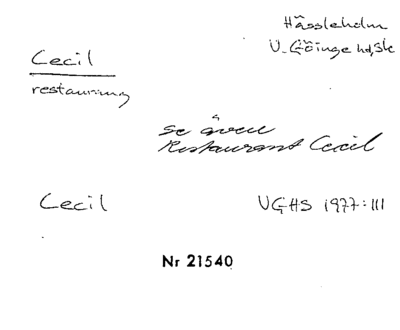 Hässleholm
V. Göinge hd, Sk
Cecil
restaurang
se även
Restaurant Cecil
Cecil
VGHS 1977:III
Nr 21540